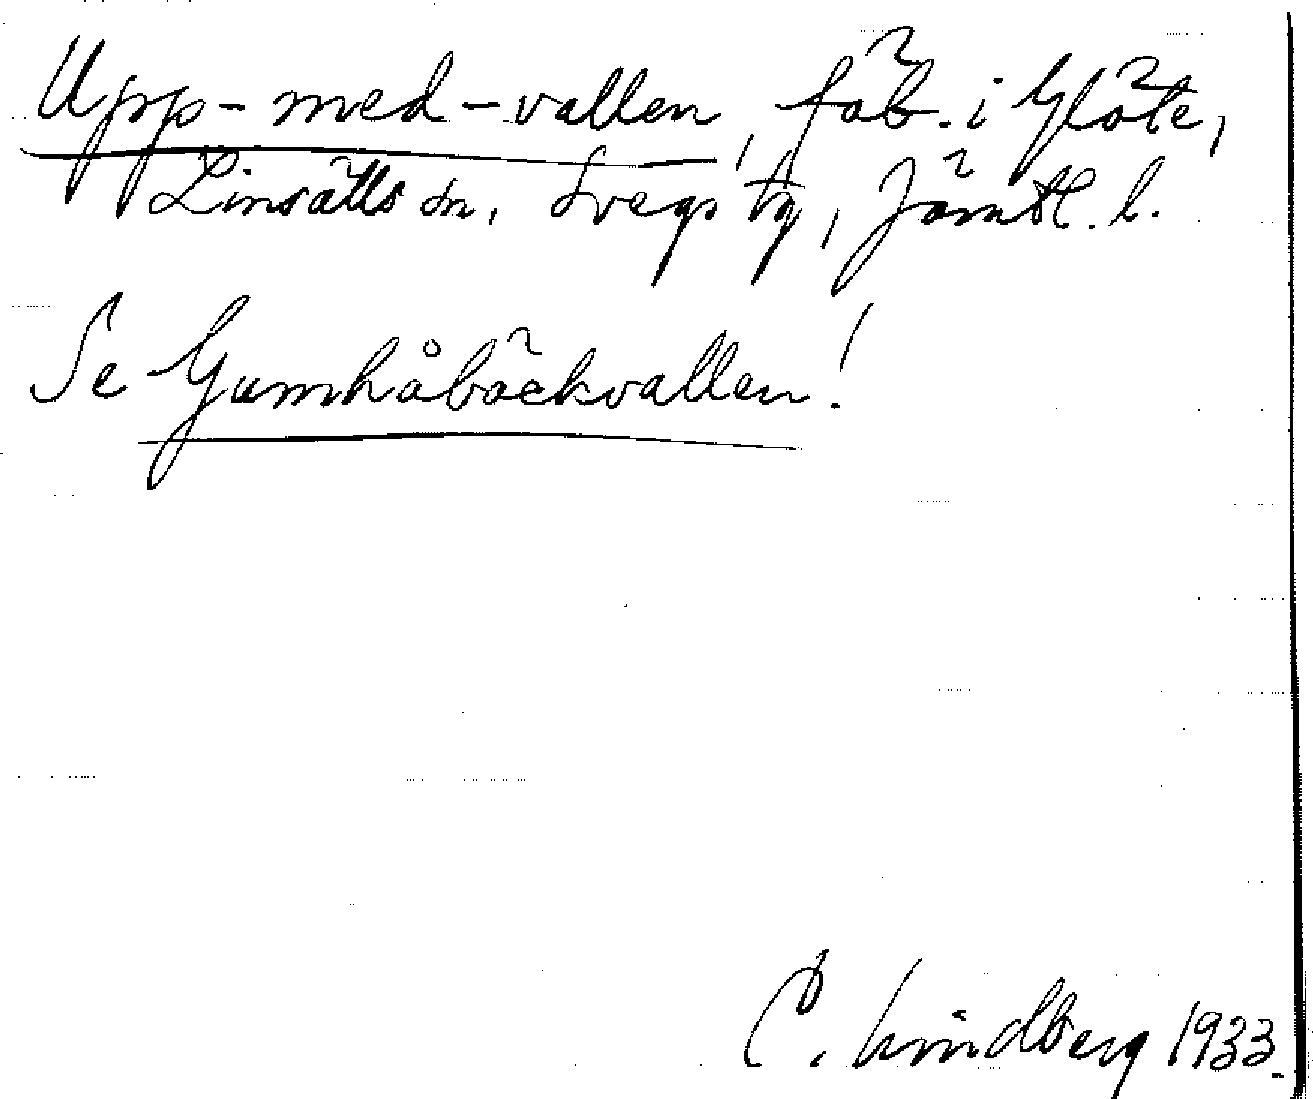 Upp-med-vallen, fäb. i Glöte,
Linsälls sn, Svegs tg, Jämtl. l.
Se Gumhåbäckvallen!
C. Lindberg 1933.